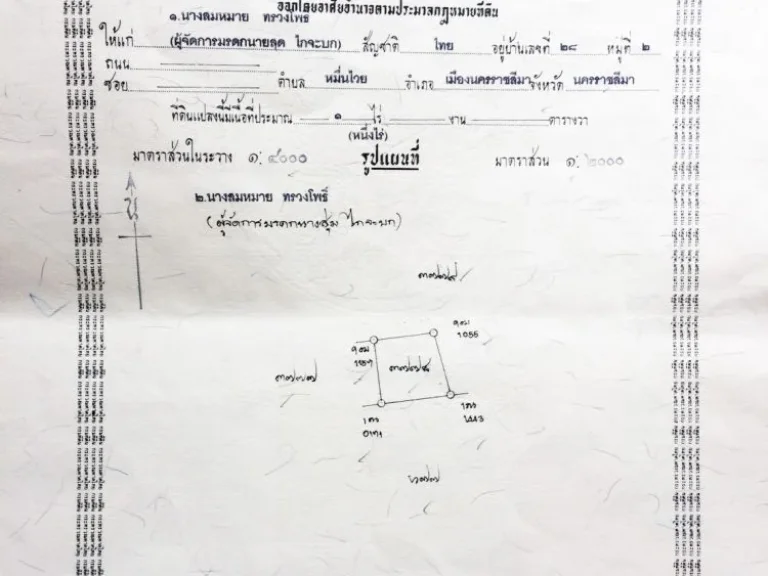 ออกโดยอาศัยอำนาจตามประมวลกฎหมายที่ดิน
๑.นางสมหมาย ทรวงโพธิ์
ให้แก่ (ผู้จัดการมรดกนายลุด ไกจะบก) สัญชาติ ไทย อยู่บ้านเลขที่ ๒๘ หมู่ที่ ๒
ถนน
ซอย ตำบล หมื่นไวย อำเภอ เมืองนครราชสีมา จังหวัด นครราชสีมา
ที่ดินแปลงนี้มีเนื้อที่ประมาณ ๑ ไร่ งาน ตารางวา
(หนึ่งไร่)
มาตราส่วนในระวาง ๑: ๔๐๐๐ รูปแผนที่ มาตราส่วน ๑: ๒๐๐๐
๒.นางสมหมาย ทรวงโพธิ์
(ผู้จัดการมรดกนางชุ่ม ไกจะบก)
น
๓๗๗๗
๓๗๗๘
๖๗๗